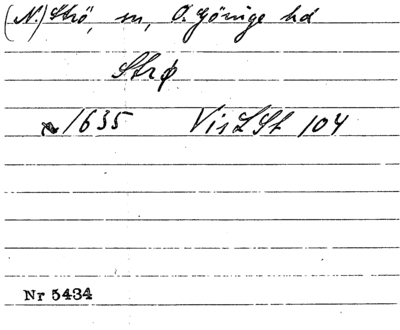 (N.) Strö, sn, Ö. Göinge hd
Strø
1635 VisLSt 104
Nr 5434